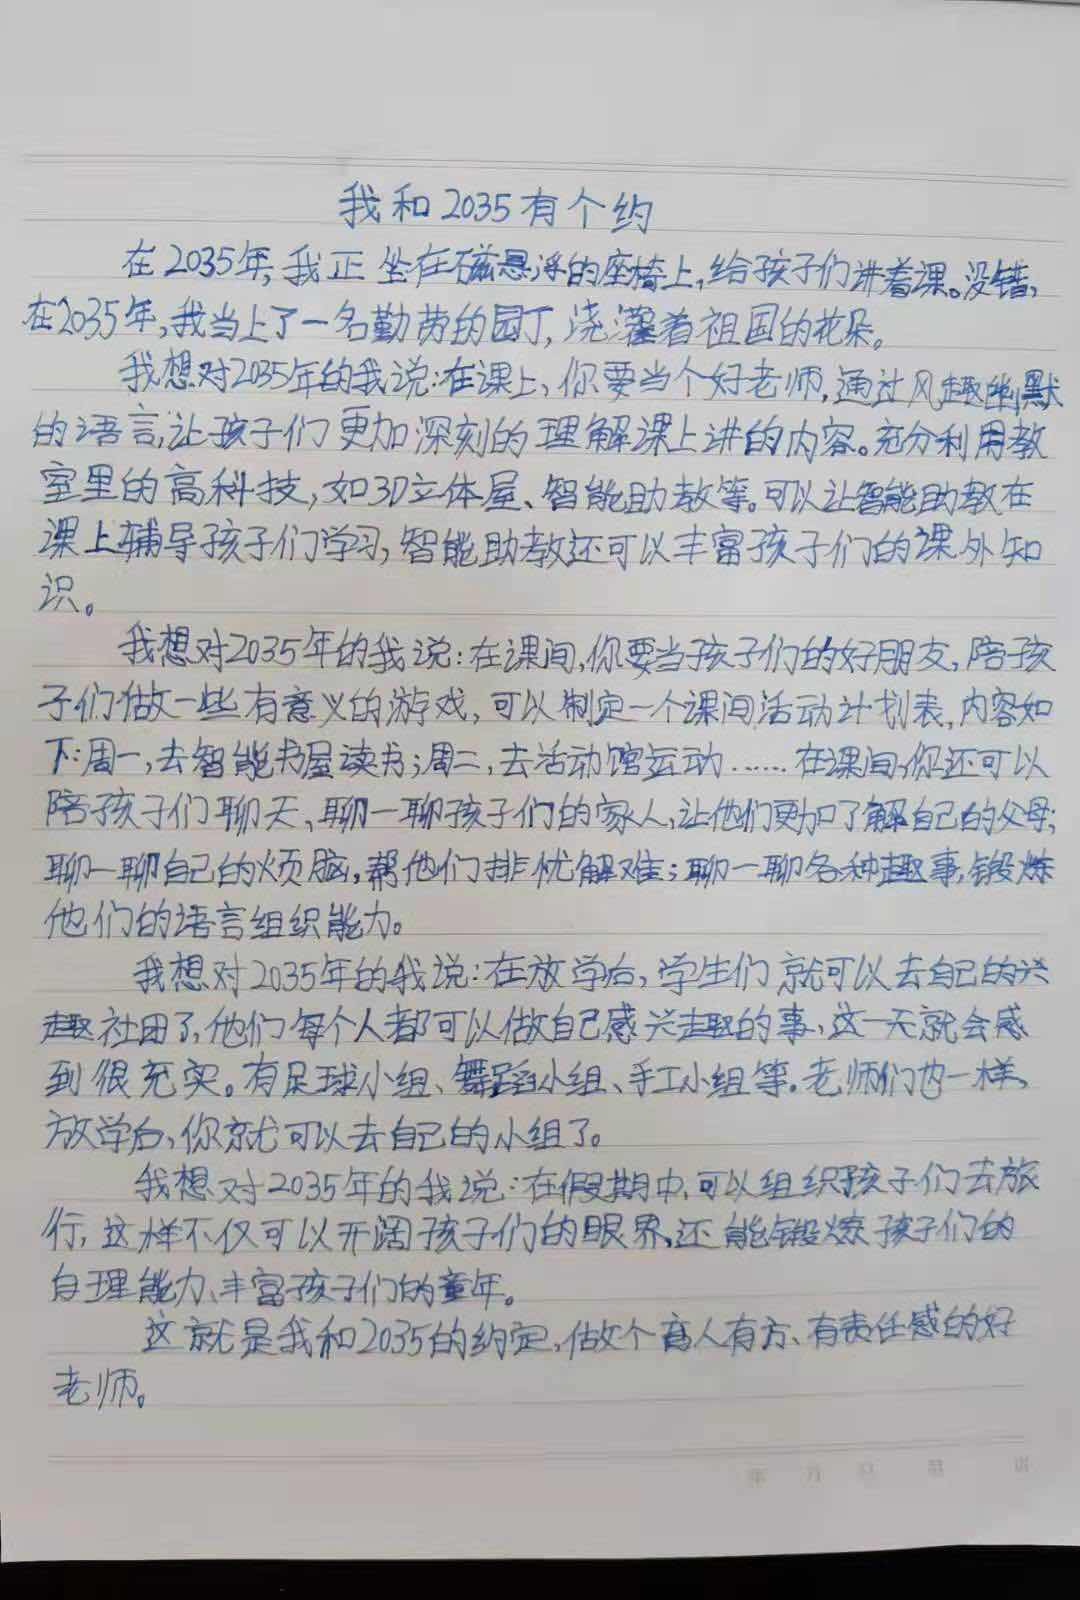 我和2035有个约
在2035年,我正坐在磁悬浮的座椅上,给孩子们讲着课。没错,
在2035年,我当上了一名勤劳的园丁,浇灌着祖国的花朵。
我想对2035年的我说:在课上,你要当个好老师,通过风趣幽默
的语言,让孩子们更加深刻的理解课上讲的内容。充分利用教
室里的高科技,如3D立体屋、智能助教等。可以让智能助教在
课上辅导孩子们学习,智能助教还可以丰富孩子们的课外知
识。
我想对2035年的我说:在课间,你要当孩子们的好朋友,陪孩
子们做一些有意义的游戏,可以制定一个课间活动计划表,内容如
下:周一,去智能书屋读书;周二,去活动馆运动……在课间,你还可以
陪孩子们聊天,聊一聊孩子们的家人,让他们更加了解自己的父母;
聊一聊自己的烦脑,帮他们排忧解难;聊一聊各种趣事,锻炼
他们的语言组织能力。
我想对2035年的我说:在放学后,学生们就可以去自己的兴
趣社团了,他们每个人都可以做自己感兴趣的事,这一天就会感
到很充实。有足球小组、舞蹈小组、手工小组等。老师们也一样,
放学后,你就可以去自己的小组了。
我想对2035年的我说:在假期中,可以组织孩子们去旅
行,这样不仅可以开阔孩子们的眼界,还能锻炼孩子们的
自理能力、丰富孩子们的童年。
这就是我和2035的约定,做个育人有方、有责任感的好
老师。